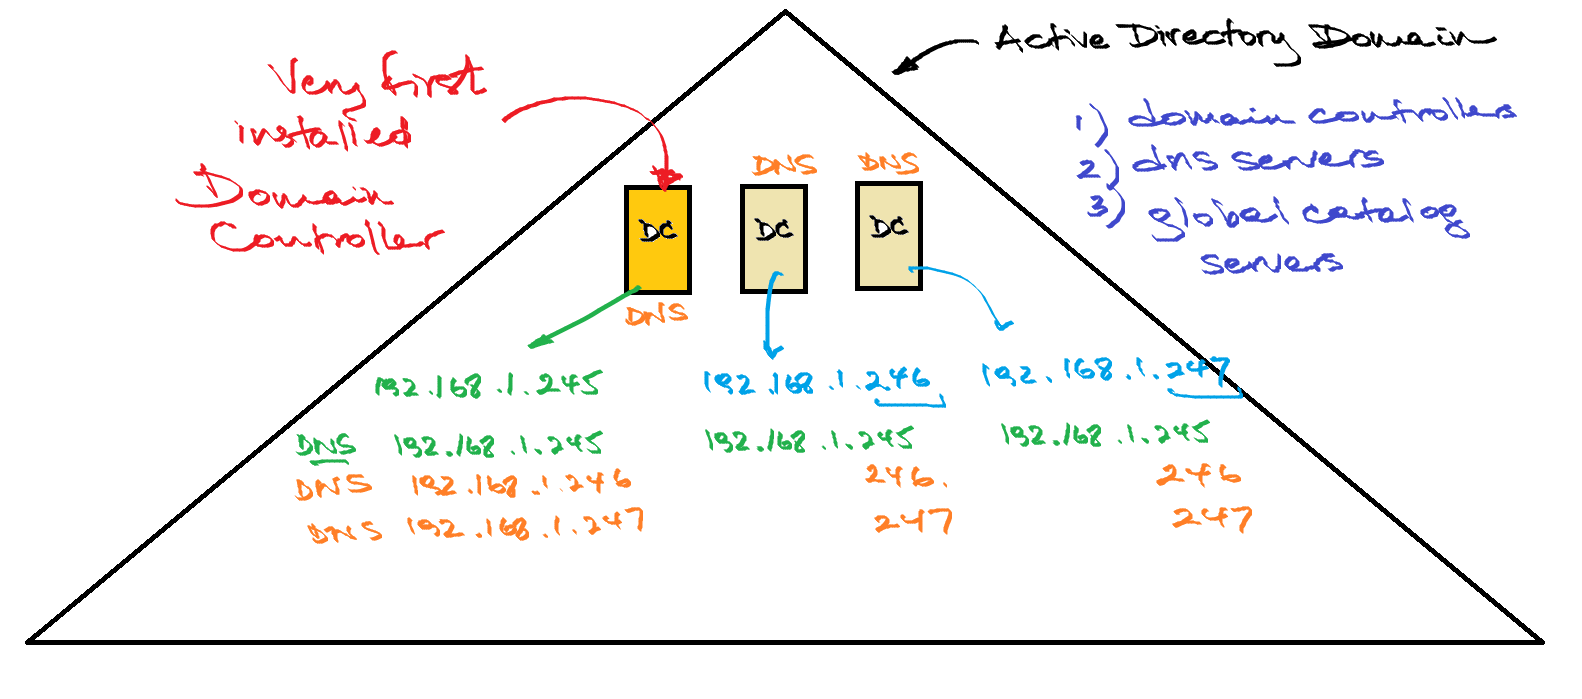 Active Directory Domain
Very first
installed
Domain
Controller
1) domain controllers
2) dns servers
3) global catalog
servers
DNS
DNS
DC
DC
DC
DNS
192.168.1.245
192.168.1.246
192.168.1.247
DNS 192.168.1.245
192.168.1.245
192.168.1.245
DNS 192.168.1.246
246.
246
DNS 192.168.1.247
247
247